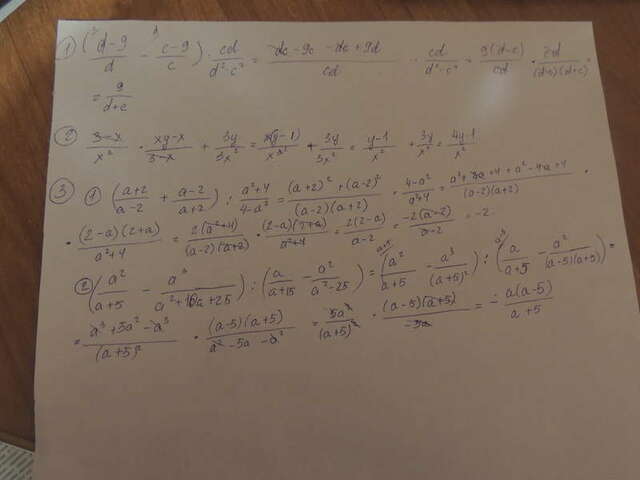 1) (d-9/d - c-9/c) · cd/d²-c² = dc-9c-dc+9d/cd · cd/d²-c² = 9(d-c)/cd · cd/(d-c)(d+c) =
= 9/d+c
2) 3-x/x² · xy-x/3-x + 3y/3x² = x(y-1)/x² + 3y/3x² = y-1/x² + 3y/x² = 4y-1/x²
3) 1) (a+2/a-2 + a-2/a+2) : a²+4/4-a² = (a+2)²+(a-2)²/(a-2)(a+2) · 4-a²/a²+4 = a²+4a+4+a²-4a+4/(a-2)(a+2) ·
· (2-a)(2+a)/a²+4 = 2(a²+4)/(a-2)(a+2) · (2-a)(2+a)/a²+4 = 2(2-a)/a-2 = -2(a-2)/a-2 = -2
2) (a²/a+5 - a³/a²+10a+25) : (a/a+5 - a²/a²-25) = (a²/a+5 - a³/(a+5)²) : (a/a+5 - a²/(a-5)(a+5)) =
= a³+5a²-a³/(a+5)² · (a-5)(a+5)/a²-5a-a² = 5a²/(a+5)² · (a-5)(a+5)/-5a = - a(a-5)/a+5